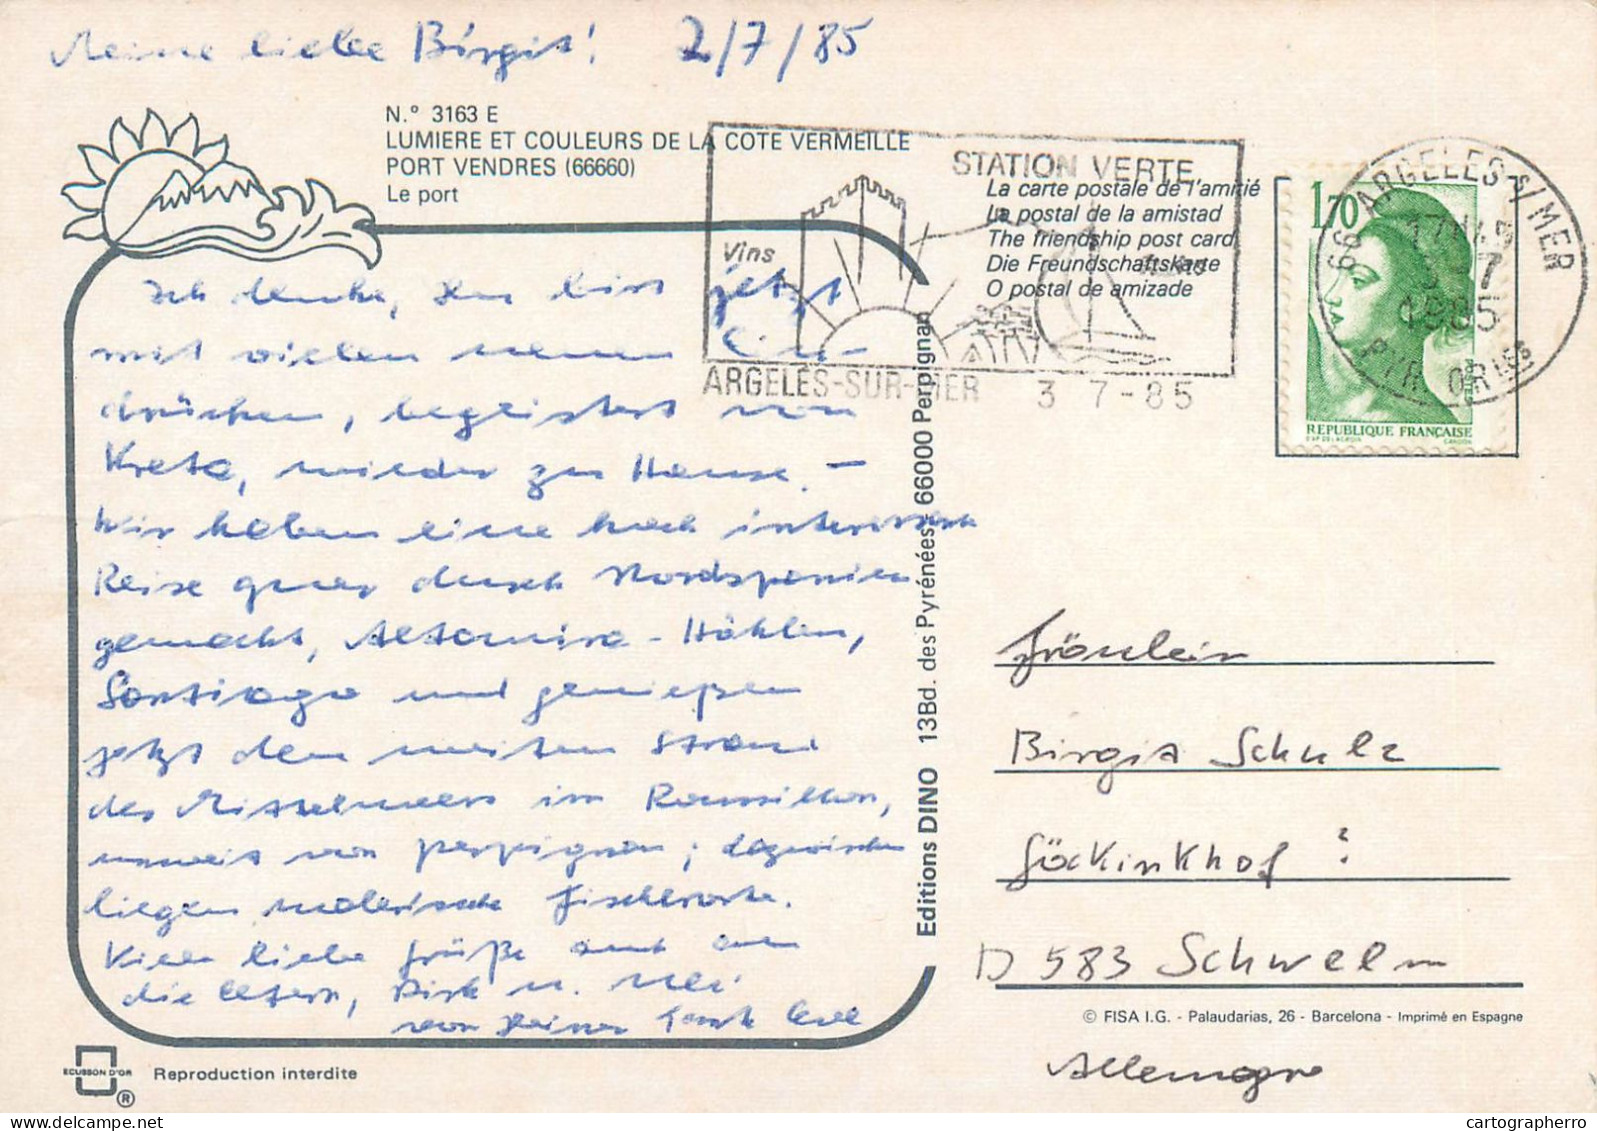 Meine liebe Birgit! 2/7/85
N.º 3163 E
LUMIERE ET COULEURS DE LA COTE VERMEILLE
PORT VENDRES (66660)
Le port
Ich denke, Du bist jetzt
mit vielen neuen Ein-
drücken, begeistert von
Kreta, wieder zu Hause. –
Wir haben eine hoch interessante
Reise quer durch Nordspanien
gemacht, Altamira-Höhlen,
Santiago und genießen
jetzt den weiten Strand
des Mittelmeers im Roussillon,
unweit von Perpignan; dazwischen
liegen malerische Fischerorte.
Viele liebe Grüße auch an
die Eltern, Dirk u.
von Deiner Tante
ECUSSON D'OR
®
Reproduction interdite
Editions DINO 13Bd. des Pyrénées - 66000 Perpignan
STATION VERTE
Vins
ARGELÈS-SUR-MER 3 7-85
La carte postale de l'amitié
La postal de la amistad
The friendship post card
Die Freundschaftskarte
O postal de amizade
66 ARGELES S/MER
3-7
1985
PYR. ORIES
1,70
POSTES
REPUBLIQUE FRANÇAISE
D'AP. DELACROIX GANDON
Fräulein
Birgit Schulz
Göckinkhof ?
D 583 Schwelm
Allemagne
© FISA I.G. - Palaudarias, 26 - Barcelona - Imprimé en Espagne
cartographerro